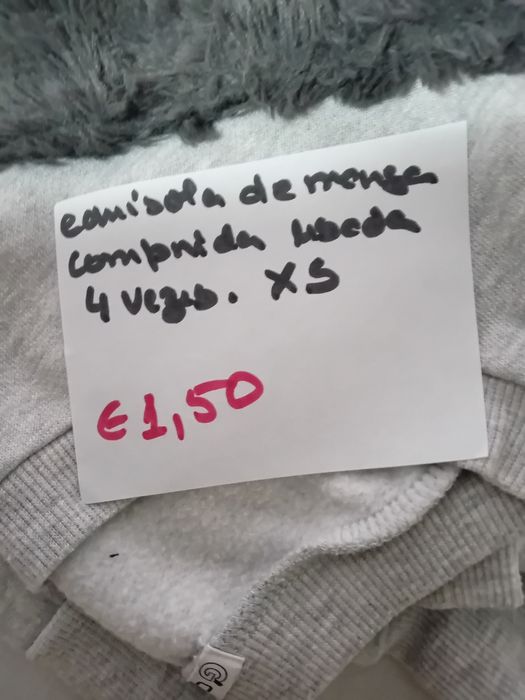 camisola de manga
comprida usada
4 vezes. XS
€1,50